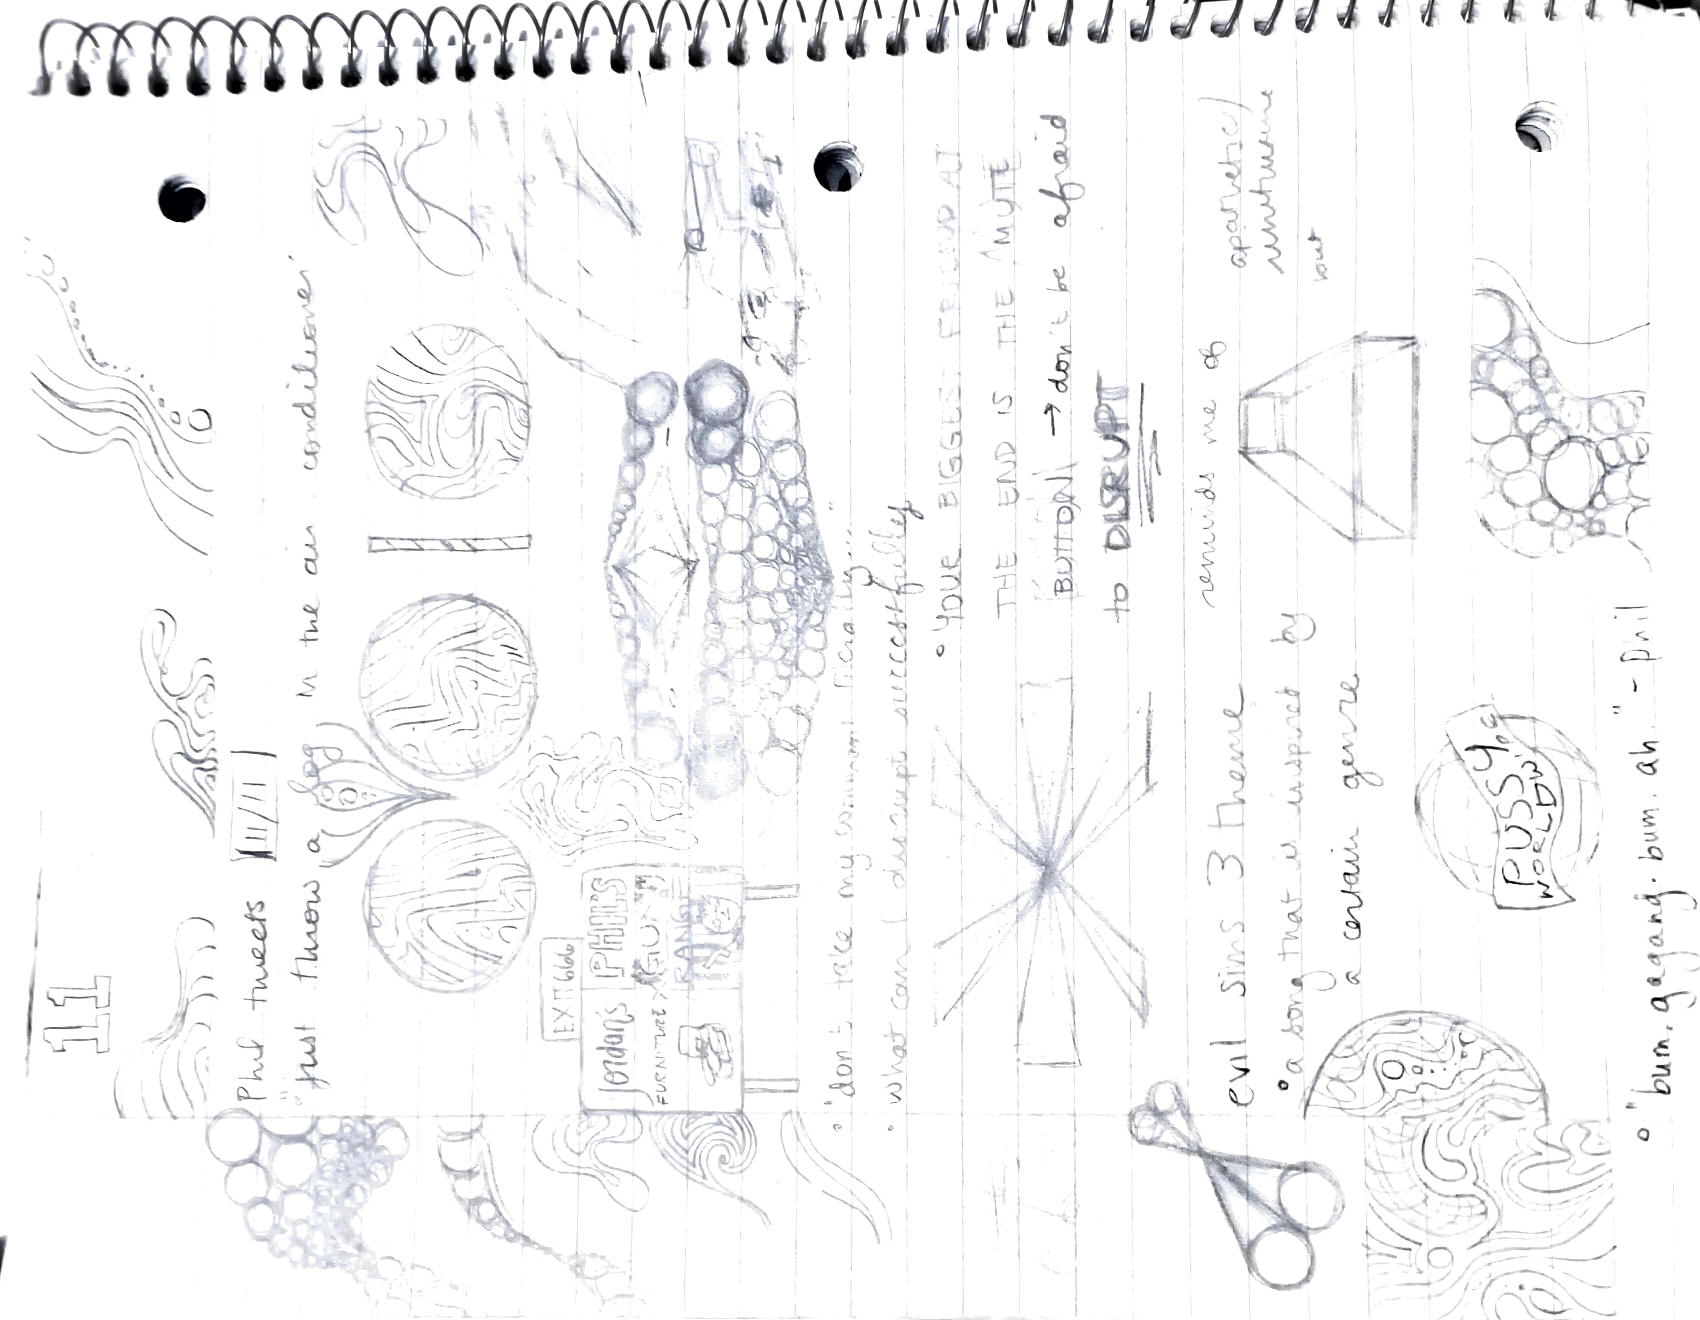 11
Phil tweets 11/11
"just throw a hog in the air conditioner"
EXIT 666
Jordan's
FURNITURE
PHIL'S
"don't take my comments literally..."
what can I disrupt successfully
YOUR BIGGEST FRIEND AT
THE END IS THE MUTE
BUTTON → don't be afraid
to DISRUPT
evil sims 3 theme
a song that is inspired by
a certain genre
reminds me of
PUSSY
WORLDW
"bum. gagang. bum. ah." - phil